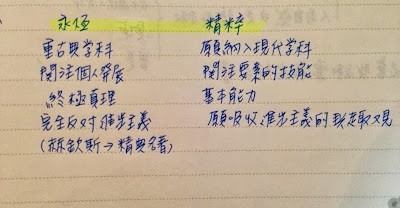 永恆 精粹
重古典学科 願納入現代学科
関注個人發展 関注要素的技能
終極真理 基本能力
完全反対進步主義 願吸收進步主義的
(赫欽斯→精典名著)